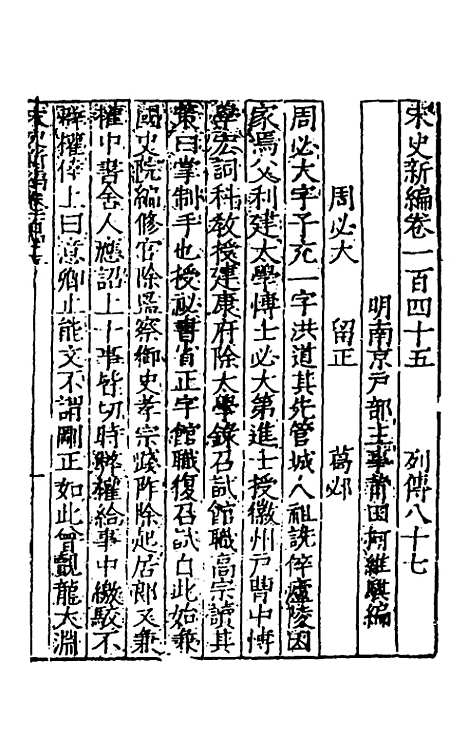 宋史新編卷一百四十五　列傳八十七
明南京戸部主事莆田柯維騏編
周必大　留正　葛邲
周必大字子充一字洪道其先管城人祖詵倅廬陵因
家焉父利建太學博士必大第進士授徽州戸曹中博
學宏詞科教授建康府除太學錄召試館職高宗讀其
策曰掌制手也授祕書省正字館職復召試自此始兼
國史院編修官除監察御史孝宗踐阼除起居郎又兼
權中書舍人應詔上十事皆切時弊權給事中繳駁不
辟權倖上曰意卿止能文不謂剛正如此曾覿龍大淵
宋史新編卷一百四十五